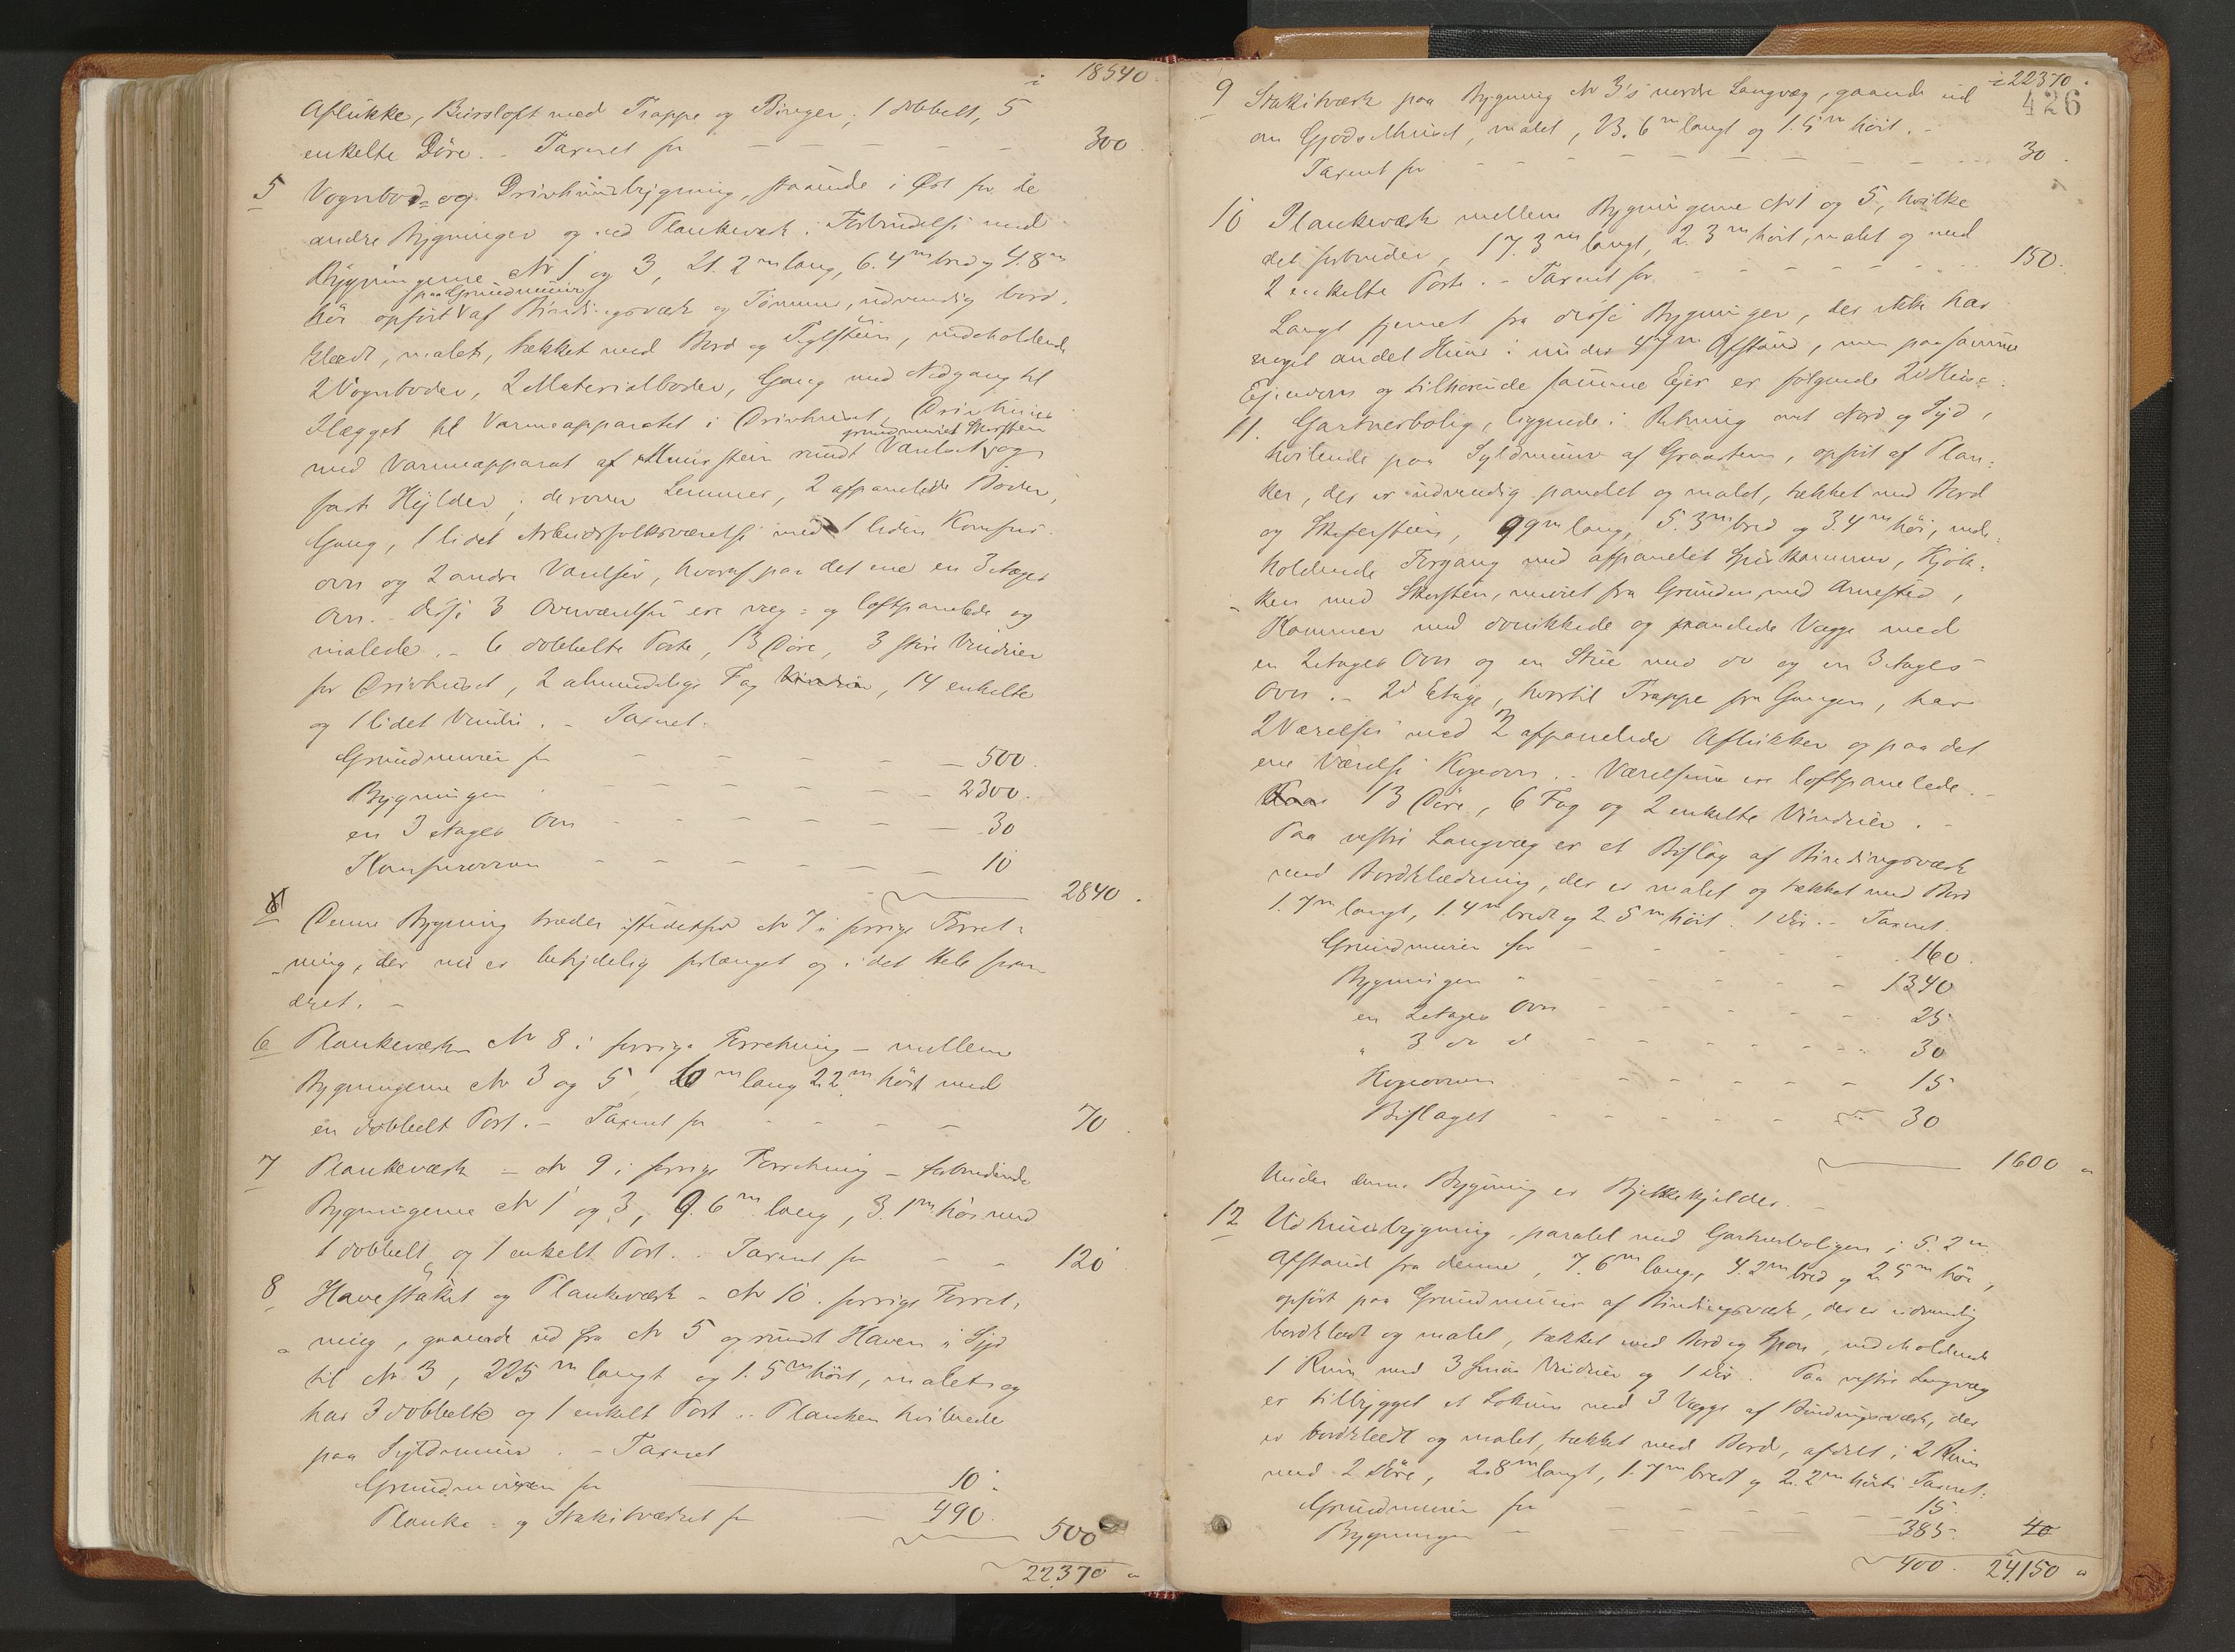 i 18540.
Aflukke, Buirsloft med Trappe og Binger; 1 dobbelt, 5
enkelte Döre. - Taxeret for - - - - - 300.
5 Vognbod- og Drivhuusbygning, staaende i Öst for de
andre Bygninger og ved Plankeværk i Forbindelse med
Bygningerne No 1 og 3, 21.2 m lang, 6.4 m bred og 4.8 m
paa Grundmuur
höi opfört af Bindingsværk og Tömmer, udvendig bord-
klædt, malet, tækket med Bord og Teglsteen, indeholdende
2 Vognboder, 2 Materialboder, Gang med Nedgang til
Ilægget til Varmeapparatet i Drivhuset, Drivhuus
grundmuret Skorsteen
med Varmeapparat af Muursteen rundt Værelset og
faste Hylder; derover Lemmer, 2 afpanelede Boder,
Gang, 1 lidet Arbeidsfolksværelse med 1 liden Komfur-
ovn og 2 andre Værelser, hvoraf paa det ene en 3 Etages
Ovn. - Disse 3 Overværelser ere væg- og loftpanelede og
malede. - 6 dobbelte Porte, 13 Döre, 3 store Vinduer
for Drivhuset, 2 almindelige Fag Vinduer, 14 enkelte
og 1 lidet Vindu. - Taxeret:
Grundmuren for - - - - - 500.
Bygningen - - - - - 2300.
en 3 Etages Ovn - - - - - 30
Komfurovnen - - - - - 10
2840.
6 Denne Bygning træder istedetfor No 7 i forrige Forret-
ning, der nu er betydelig forlænget og i det Hele foran-
dret. -
6 Plankeværk No 8 i forrige Forretning - mellem
Bygningerne No 3 og 5, 10 m lang 2.2 m höit med
en dobbelt Port. - Taxeret for - - - - 70.
7 Plankeværk - No 9 i forrige Forretning - forbindende
Bygningerne No 1 og 3, 9.6 m lang, 3.1 m höi med
1 dobbelt og 1 enkelt Port. - Taxeret for - - 120
8 Havestaket og Plankeværk - No 10 forrige Forret-
ning, gaaende ud fra No 5 og rundt Haven i Syd
til No 3, 225 m langt og 1.5 m höit, malet og
har 3 dobbelte og 1 enkelt Port. - Planken hvilende
paa Syldmuur. - Taxeret
Grundmuren for 10.
Planke- og Stakitværket for - 490.
500
22370 "
i 22370.
426
9 Stakitværk paa Bygning No 3's nordre Langvæg, gaaende ud
om Gjödselhuset, malet, 13.6 m langt og 1.5 m höit. -
Taxeret for - - - - - - - - 30.
10 Plankeværk mellem Bygningerne No 1 og 5, hvilke
det forbinder, 17.3 m langt, 2.3 m höit, malet og med
2 enkelte Porte. - Taxeret for - - - - - 150.
Langt fjernet fra disse Bygninger, der ikke har
noget andet Huus i under 47 m Afstand, men paa samme
Eiendom og tilhörende samme Eier er fölgende 2 Huse:
11. Gartnerbolig, liggende i Retning mod Nord og Syd,
hvilende paa Syldmuur af Graasteen, opfört af Plan-
ker, der er udvendig panelet og malet, tækket med Bord
og Skifersteen, 9.9 m lang, 5.3 m bred og 3.4 m höi, inde-
holdende Forgang med afpanelet Spiskammer, Kjök-
ken med Skorsteen, muret fra Grunden, med Arnested,
Kammer med overikkede og panelede Vægge med
en 2 Etages Ovn og en Stue med do og en 3 Etages
Ovn. - 2d Etage, hvortil Trappe fra Gangen, har
2 Værelser med 2 afpanelede Aflukker og paa det
ene Værelse Kogeovn. - Værelserne ere loftpanelede. -
13 Döre, 6 Fag og 2 enkelte Vinduer. -
Paa vestre Langvæg er et Bislag af Bindingsværk
med Bordklædning, der er malet og tækket med Bord
1.7 m langt, 1.4 m bredt og 2.5 m höit. 1 Dör. - Taxeret.
Grundmuren for - - - - 160.
Bygningen " - - - - 1340
en 2 Etages Ovn - - - - 25
" 3 do d - - - - 30
Kogeovnen - - - - 15
Bislaget - - - - 30
1600 "
Under denne Bygning er Bjelkekjelder. -
12 Udhuusbygning, paralel med Gartnerboligen i 5.2 m
Afstand fra denne, 7.6 m lang, 4.2 m bred og 2.5 m höi,
opfört paa Grundmuur af Bindingsværk, der er udvendig
bordklædt og malet, tækket med Bord og Spon, indeholdende
1 Rum med 3 smaa Vinduer og 1 Dör. Paa vestre Langvæg
er tilbygget et Lokum med 3 Vægge af Bindingsværk, der
er bordklædt og malet, tækket med Bord, afdelt i 2 Rum
med 2 Döre, 2.8 m langt, 1.7 m bredt og 2.2 m höit. Taxeret:
Grundmuren for - - - - 15.
Bygningen - - - - 385. 40
400. 24150 "